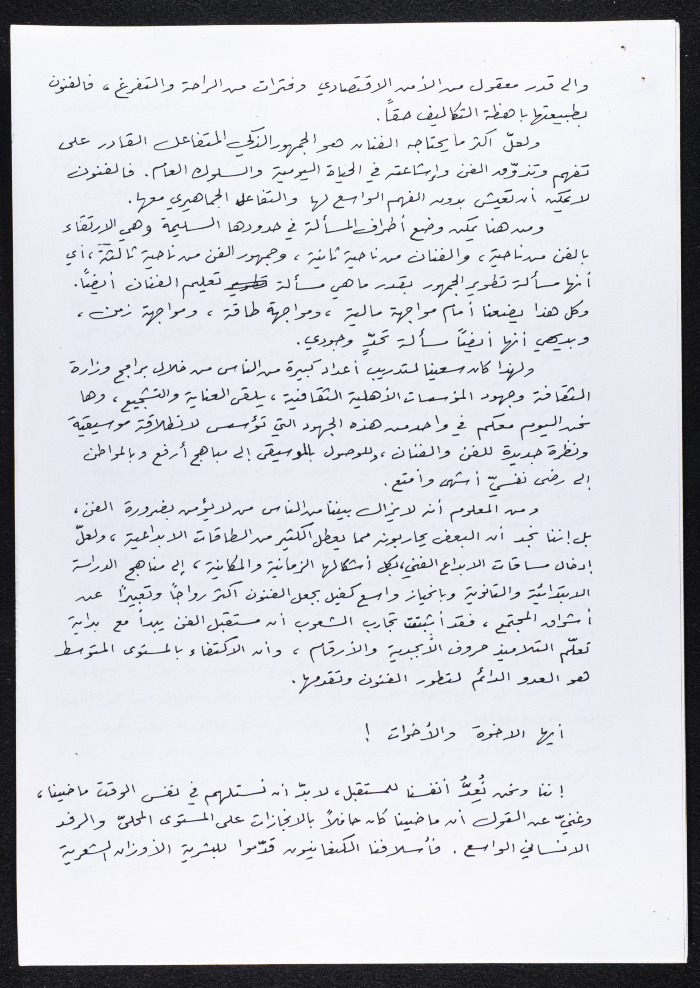 والى قدر معقول من الأمن الاقتصادي وفترات من الراحة والتفرغ ، فالفنون
بطبيعتها باهظة التكاليف حقاً .
ولعلّ أكثر ما يحتاجه الفنان هو الجمهور الذكي المتفاعل القادر على
تفهم وتذوّق الفن وإشاعته في الحياة اليومية والسلوك العام . فالفنون
لا يمكن أن تعيش بدون الفهم الواسع لها والتفاعل الجماهيري معها .
ومن هنا يمكن وضع أطراف المسألة في حدودها السليمة وهي الارتقاء
بالفن من ناحية ، والفنان من ناحية ثانية ، وجمهور الفن من ناحية ثالثة ، أي
أنها مسألة تطوير الجمهور بقدر ما هي مسألة تعليم الفنان أيضاً .
وكل هذا يضعنا أمام مواجهة مالية ، ومواجهة طاقة ، ومواجهة زمن ،
وبديهي أنها أيضاً مسألة تحدٍّ وجودي .
ولهذا كان سعينا لتدريب أعداد كبيرة من الناس من خلال برامج وزارة
الثقافة وجهود المؤسسات الأهلية الثقافية ، يلقى العناية والتشجيع ، وها
نحن اليوم معكم في واحد من هذه الجهود التي تؤسس لانطلاقة موسيقية
ونظرة جديدة للفن والفنان ، وللوصول بالموسيقى إلى مباهج أرفع وبالمواطن
إلى رضى نفسيّ أشهى وأمتع .
ومن المعلوم أنه لا يزال بيننا من الناس من لا يؤمن بضرورة الفن ،
بل إننا نجد أن البعض يحاربونه مما يعطل الكثير من الطاقات الابداعية ، ولعلّ
إدخال مساقات الابداع الفني ، بكل أشكالها الزمانية والمكانية ، إلى مناهج الدراسة
الابتدائية والثانوية وبانحياز واسع كفيل بجعل الفنون أكثر رواجاً وتعبيراً عن
أشواق المجتمع ، فقد أثبتت تجارب الشعوب أن مستقبل الفن يبدأ مع بداية
تعلّم التلاميذ حروف الأبجدية والأرقام ، وأن الاكتفاء بالمستوى المتوسط
هو العدو الدائم لتطور الفنون وتقدمها .
أيها الاخوة والأخوات !
إننا ونحن نُعِدُّ أنفسنا للمستقبل ، لا بدّ أن نستلهم في نفس الوقت ماضينا ،
وغنيّ عن القول أن ماضينا كان حافلاً بالانجازات على المستوى المحليّ والرفد
الانساني الواسع . فأسلافنا الكنعانيون قدّموا للبشرية الأوزان الشعرية